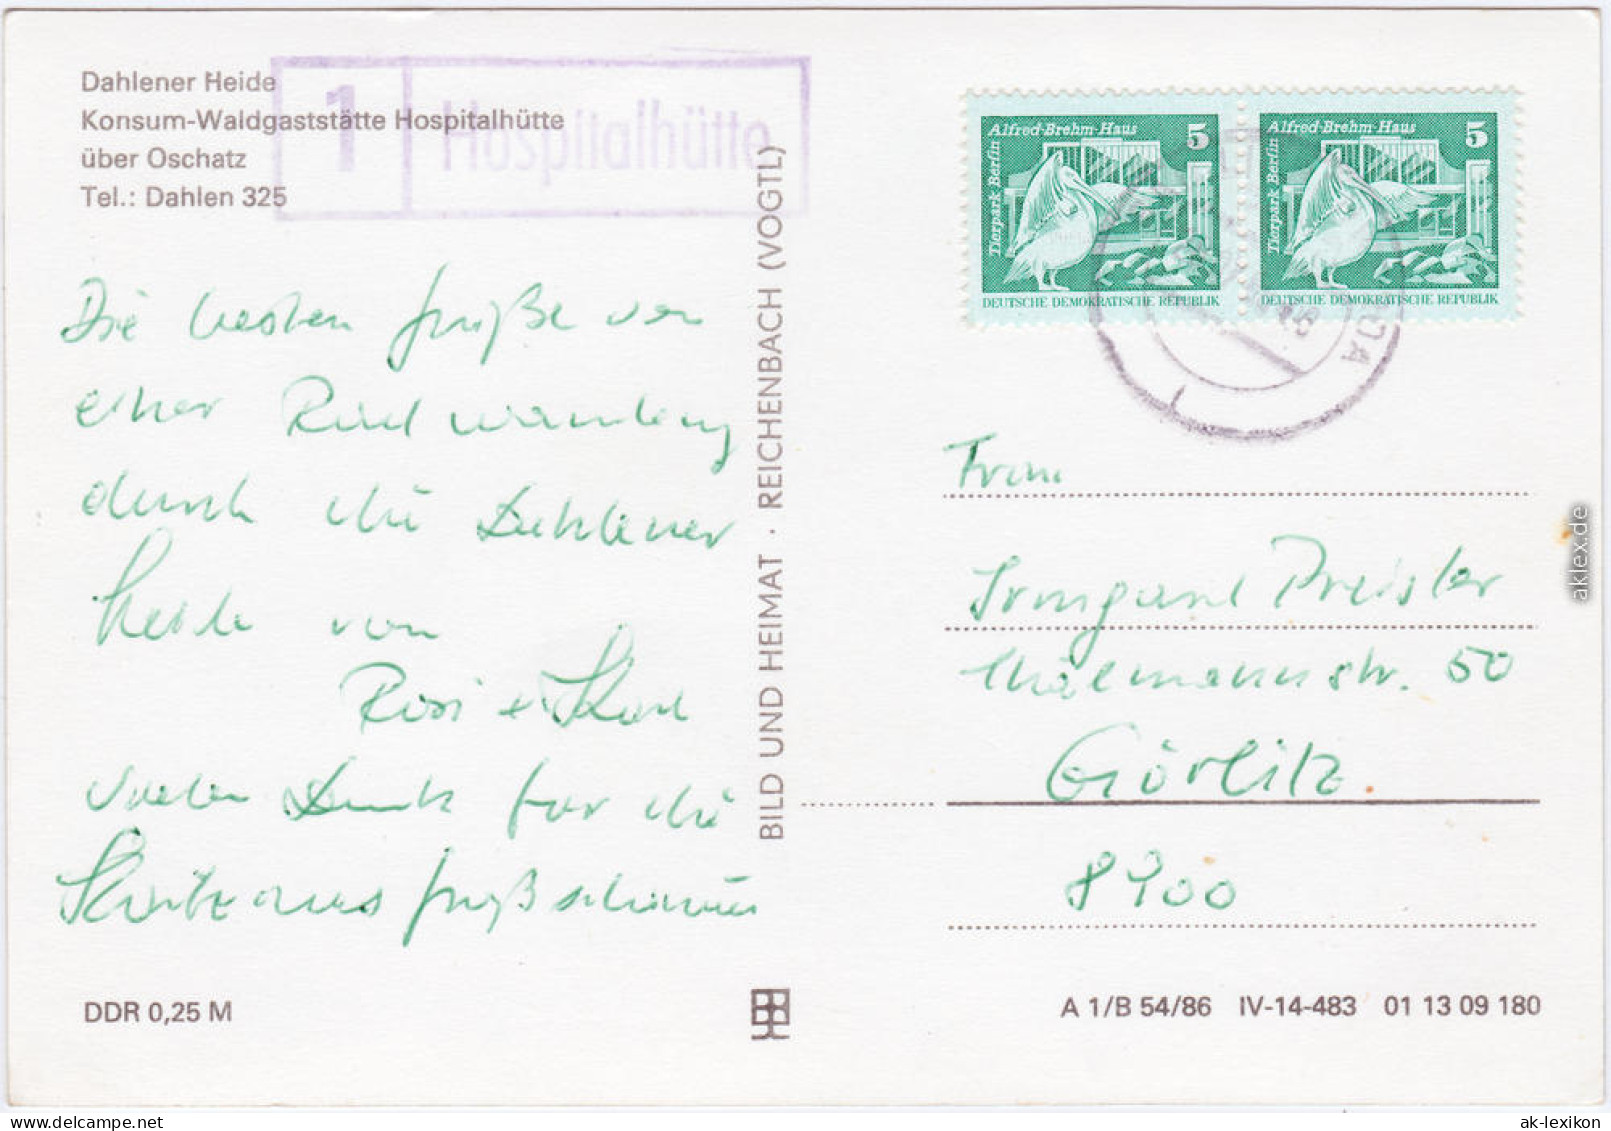 Dahlener Heide
Konsum-Waldgaststätte Hospitalhütte
über Oschatz
Tel.: Dahlen 325
1 Hospitalhütte
Alfred-Brehm-Haus 5
Tierpark Berlin
DEUTSCHE DEMOKRATISCHE REPUBLIK
Alfred-Brehm-Haus 5
Tierpark Berlin
DEUTSCHE DEMOKRATISCHE REPUBLIK
Die besten Grüße von
einer Radwanderung
durch die Dahlener
Heide von
Rosi +
Vielen Dank für die
Karte aus Großschönau
BILD UND HEIMAT · REICHENBACH (VOGTL)
Frau
Irmgard Preisler
Thälmannstr. 50
Görlitz.
8900
DDR 0,25 M
A 1/B 54/86 IV-14-483 01 13 09 180
aklex.de
ak-ansichtskarten.de
ak-lexikon